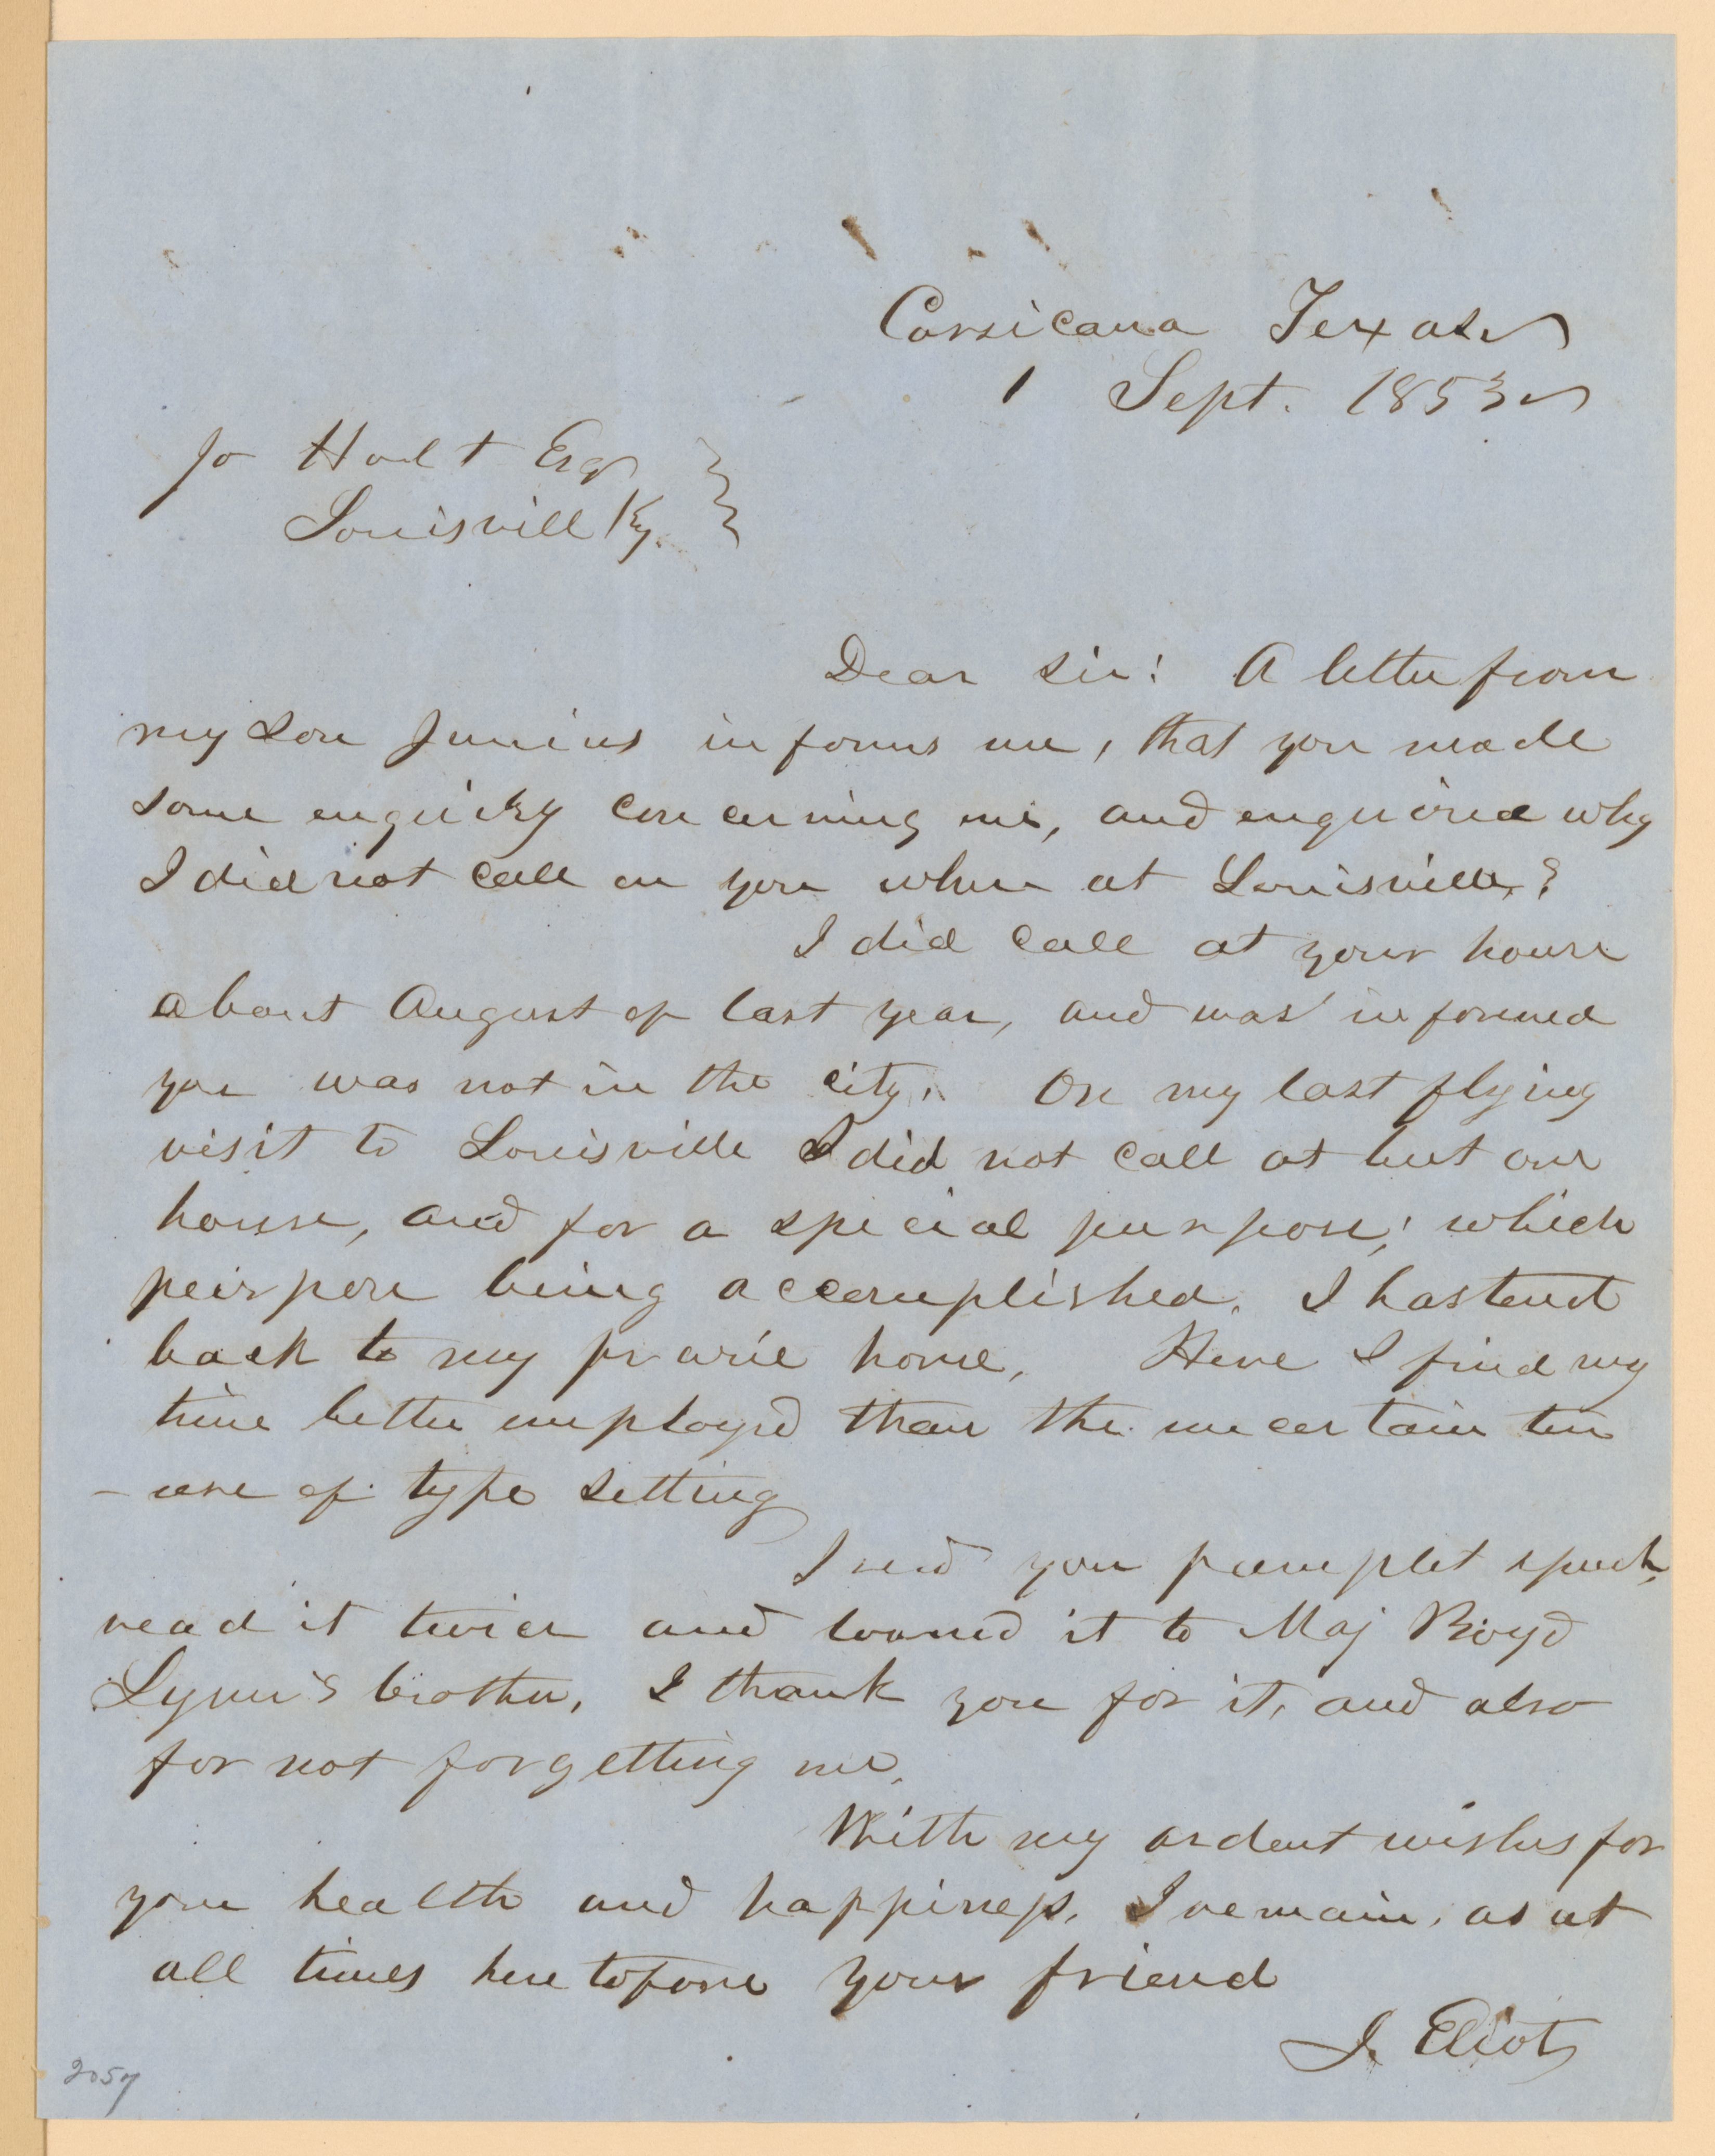 Corsicana Texas
1 Sept. 1853
Jo Holt Esq
Louisvill Ky.
Dear Sir: A letter from
my son Junius informs me, that you made
some enquiry concerning me, and enquired why
I did not call on you when at Louisville?
I did call at your house
about August of last year, and was informed
you was not in the city. On my last flying
visit to Louisville I did not call at but one
house, and for a special purpose; which
purpose being accomplished, I hastend
back to my prarie home. Here I find my
time better employed than the uncertain ten
- ure of type setting
I recd your pamplet speech,
read it twice and loaned it to Maj Boyd
Lynn's brother, I thank you for it, and also
for not forgetting me.
With my ardent wishes for
your health and happiness, I remain, as at
all times heretofore your friend
J. Eliot
2057